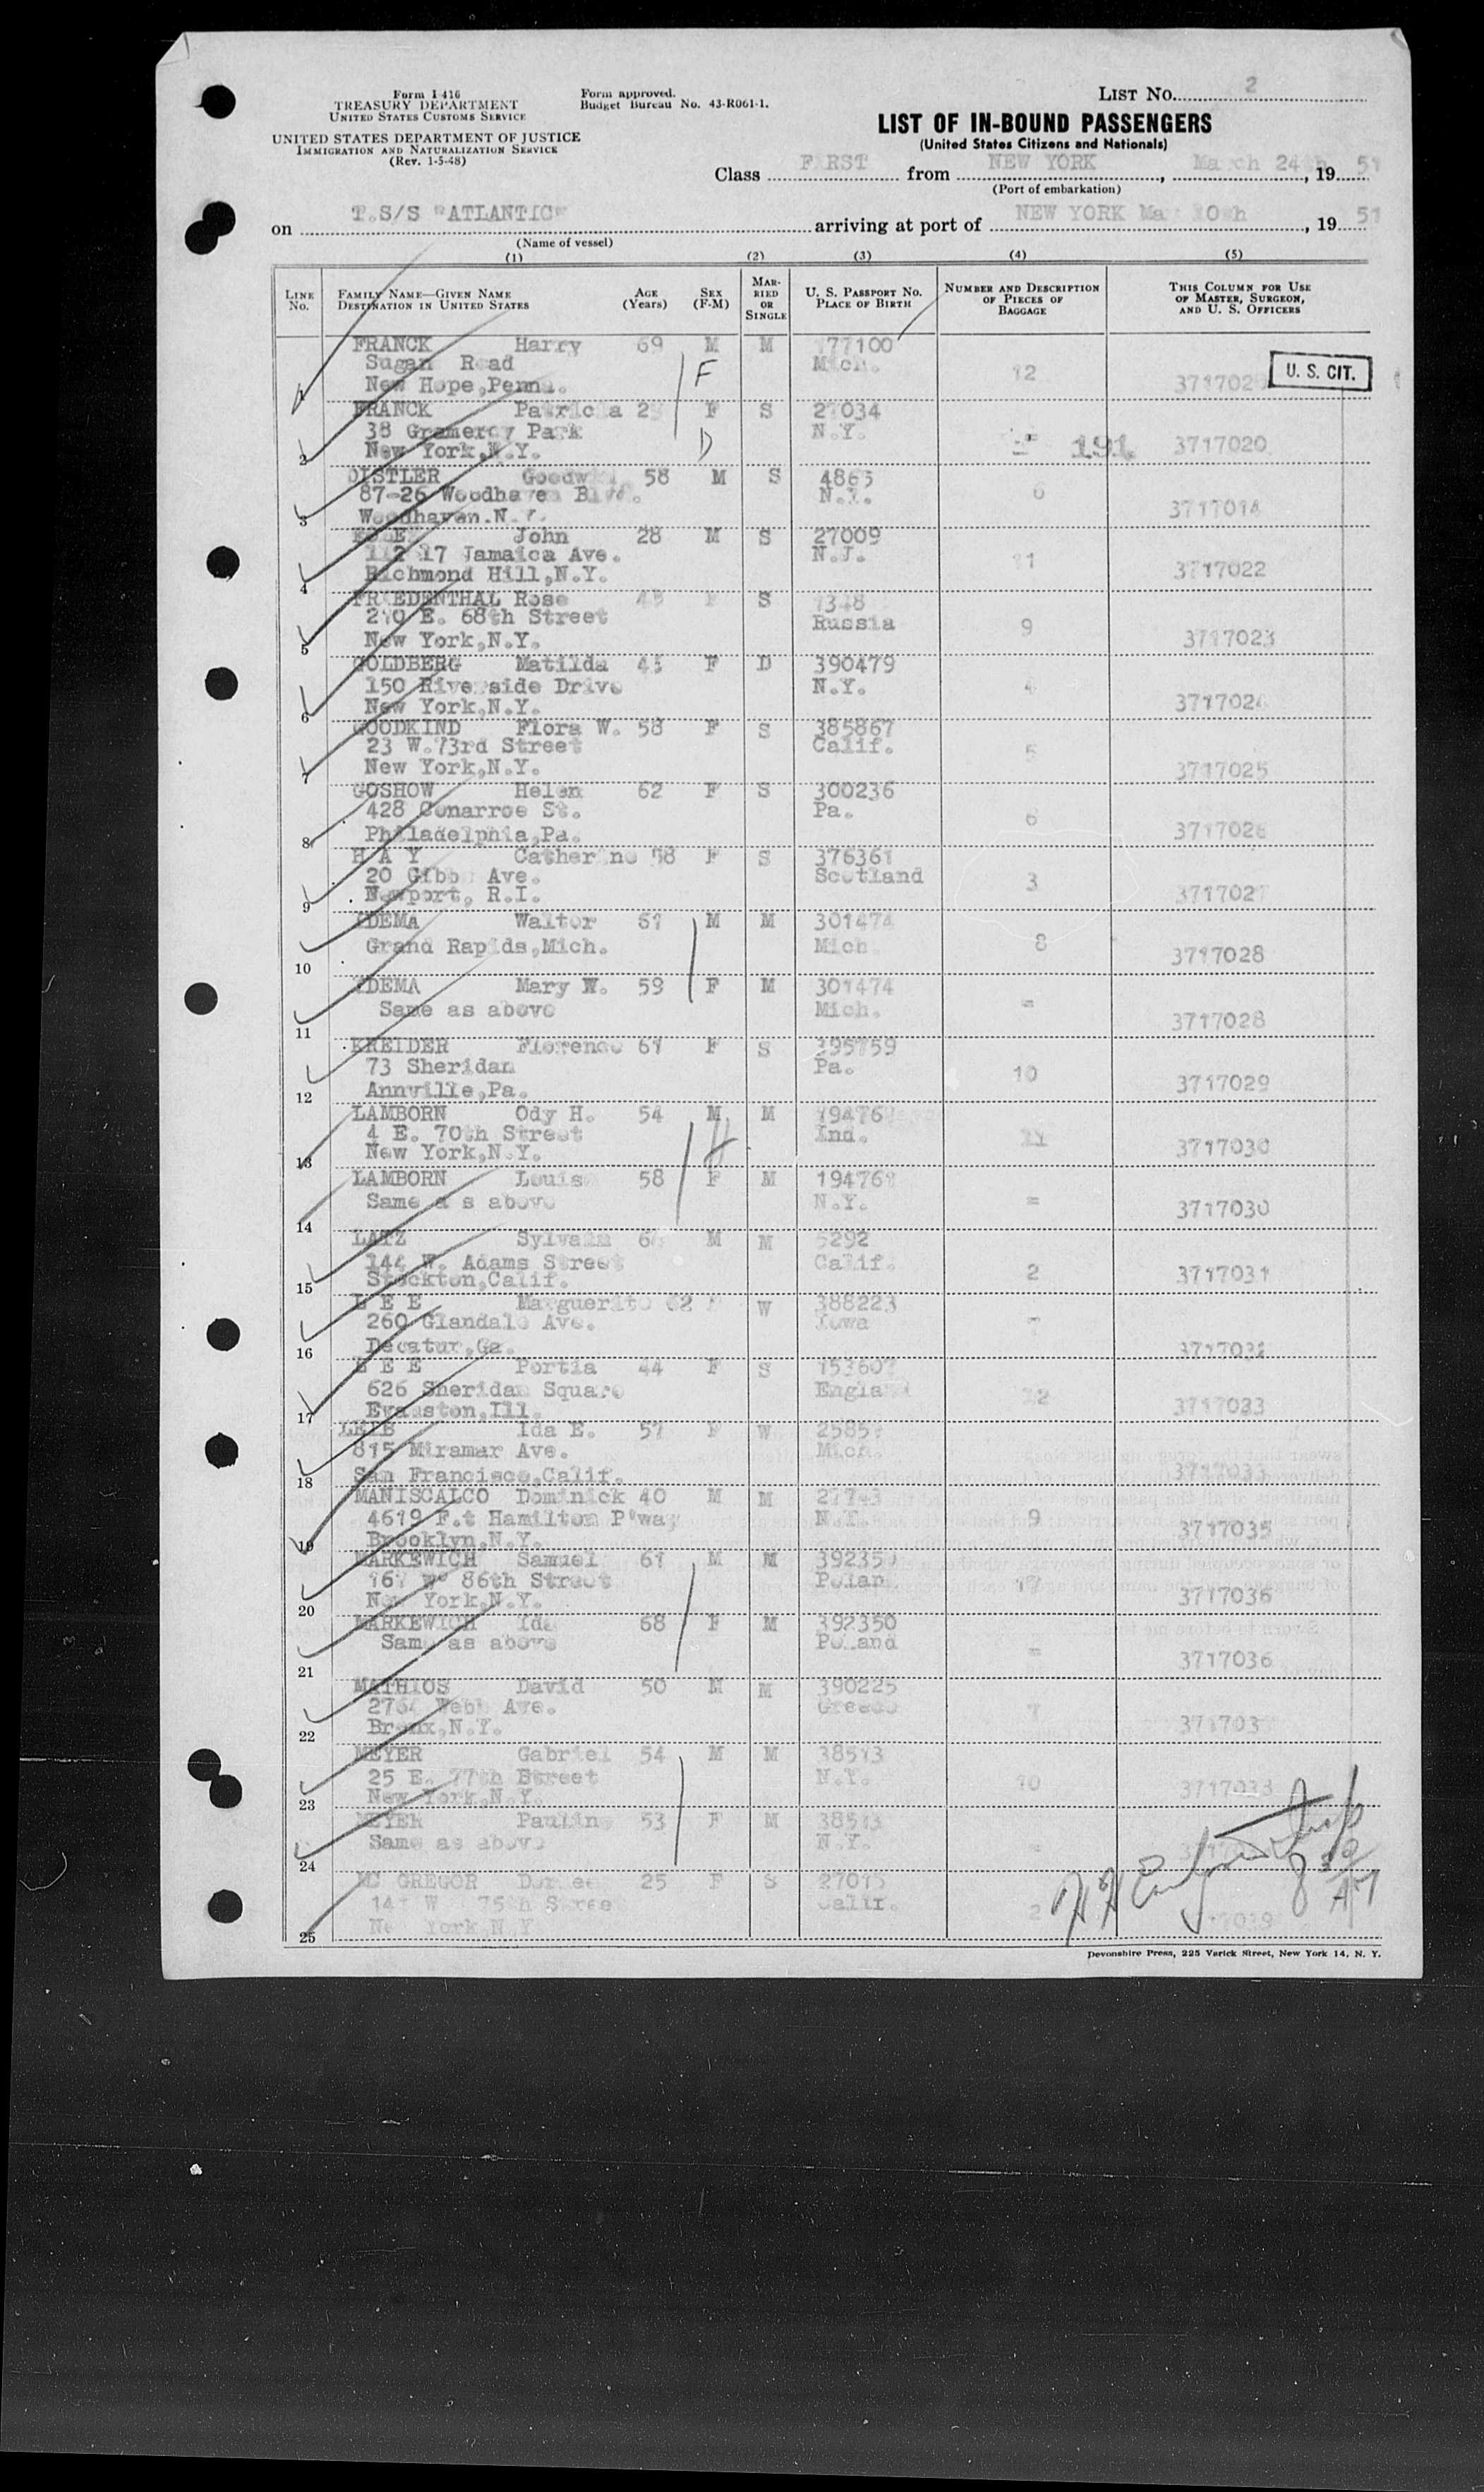 Form I-416
TREASURY DEPARTMENT
UNITED STATES CUSTOMS SERVICE
UNITED STATES DEPARTMENT OF JUSTICE
IMMIGRATION AND NATURALIZATION SERVICE
(Rev. 1-5-48)
Form approved.
Budget Bureau No. 43-R061-1.
LIST No. 2
LIST OF IN-BOUND PASSENGERS
(United States Citizens and Nationals)
Class FIRST from NEW YORK, March 24th, 19 51
(Port of embarkation)
on T.S/S "ATLANTIC" arriving at port of NEW YORK, 19 51
(Name of vessel)
(1) (2) (3) (4) (5)
LINE No.
FAMILY NAME—GIVEN NAME
DESTINATION IN UNITED STATES
AGE (Years)
SEX (F-M)
MARRIED OR SINGLE
U. S. PASSPORT No.
PLACE OF BIRTH
NUMBER AND DESCRIPTION OF PIECES OF BAGGAGE
THIS COLUMN FOR USE OF MASTER, SURGEON, AND U. S. OFFICERS
FRANCK Harry 69 M M 177100
Sugan Road Mich. 12 U. S. CIT.
1 New Hope,Penna. F
FRANCK Patricia F S 27034
38 Gramercy Park N.Y. 191
2 New York,N.Y. D 3717020
DISTLER 58 M S 4865
87-26 Woodhaven Blvd. 6
3 Woodhaven.N.Y. 3717014
John 28 M S 27009
17 Jamaica Ave. N.J. 11
4 Richmond Hill,N.Y. 3717022
FRIEDENTHAL Rose S
210 E. 68th Street Russia 9
5 New York,N.Y. 3717023
GOLDBERG Matilda F D 390479
150 Riverside Drive N.Y. 4
6 New York,N.Y. 3717024
GOODKIND Flora W. 58 F S 385867
23 W.73rd Street Calif. 5
7 New York,N.Y. 3717025
GOSHOW Helen 62 F S 300236
428 Conarroe St. Pa. 6
8 Philadelphia,Pa. 3717026
H A Y Catherine 58 F S 376361
20 Gibbs Ave. Scotland 3
9 Newport, R.I. 3717027
IDEMA Walter 61 M M 301474
Grand Rapids,Mich. Mich. 8
10 3717028
IDEMA Mary W. 59 F M 301474
Same as above Mich. =
11 3717028
KREIDER Florence 61 F S 395759
73 Sheridan Pa. 10
12 Annville,Pa. 3717029
LAMBORN Ody H. 54 M M 19476
4 E. 70th Street Ind. 11
13 New York,N.Y. 3717030
LAMBORN Louis 58 F M
Same a s above N.Y. =
14 3717030
LATZ Sylvain M M 5292
144 W. Adams Street Calif. 2
15 Stockton,Calif. 3717031
L E E Marguerite 62 F W 388223
260 Glandale Ave. Iowa 7
16 Decatur,Ga. 3717032
L E E Portia 44 F S
626 Sheridan Square 12
17 Evanston,Ill. 3717033
LEIB Ida E. 57 F W
815 Miramar Ave. Mich.
18 San Francisco,Calif.
MANISCALCO Dominick 40 M M
4619 F.t Hamilton P'way N.Y. 9
19 Brooklyn,N.Y. 3717035
MARKEWICH Samuel 61 M M 392350
86th Street Poland 17
20 New York,N.Y. 3717036
MARKEWICH Ida 68 F M 392350
Same as above Poland =
21 3717036
MATHIOS David 50 M M 390225
Webb Ave. Greece 7
22 Bronx,N.Y.
MEYER Gabriel 54 M M 38513
25 E. 77th Street N.Y. 10
23 New York,N.Y. 3717038
MEYER Pauline 53 F M 38513
Same as above N.Y. =
24
MC GREGOR 25 F S 27015
75th Street Calif. 2
25 New York,N.Y.
Devonshire Press, 225 Varick Street, New York 14, N. Y.